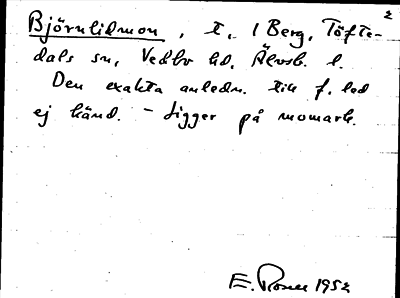 2
Björnlidmon, t., 1 Berg, Töfte-
dals sn, Vedbo hd, Älvsb. l.
Den exakta anledn. till f. led
ej känd. - Ligger på momark.
E. Rosell 1952